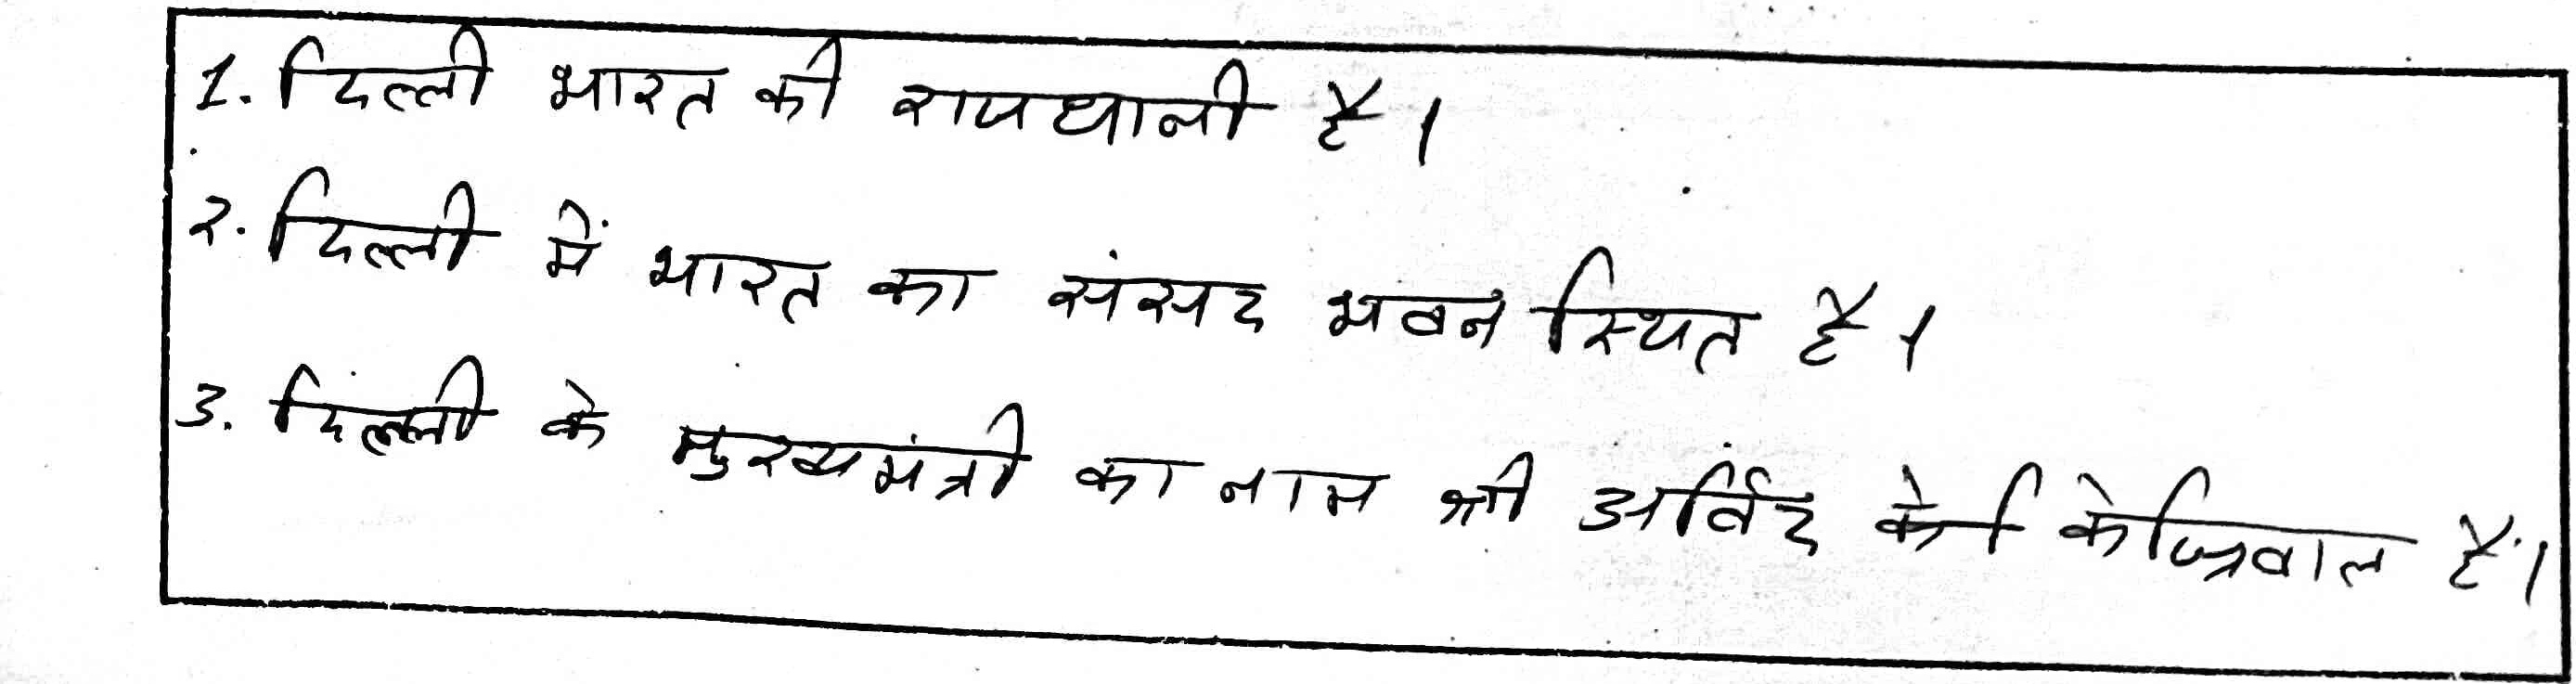 1. दिल्ली भारत की राजधानी है।
२. दिल्ली में भारत का संसद भवन स्थित है।
3. दिल्ली के मुख्यमंत्री का नाम श्री अर्विंद के केज्रिवाल है।